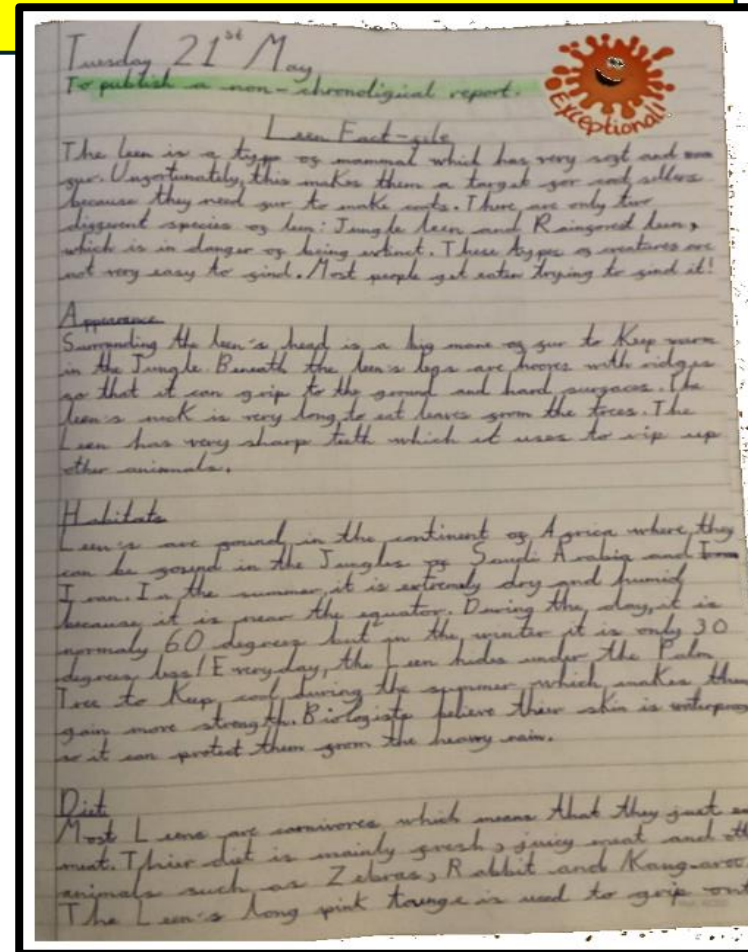 Tuesday 21st May
To publish a non-chronoligical report.
Exceptional!
Leen Fact-file
The leen is a type of mammal which has very soft and
fur. Unfortunately, this makes them a target for coat sellers
because they need fur to make coats. There are only two
different species of leen: Jungle leen and Rainforest leen,
which is in danger of being extinct. These types of creatures are
not very easy to find. Most people get eaten trying to find it!
Appearance
Surrounding the leen's head is a big mane of fur to Keep warm
in the Jungle. Beneath the leen's legs are hooves with ridges
so that it can grip to the ground and hard surfaces. The
leen's neck is very long to eat leaves from the trees. The
Leen has very sharp teeth which it uses to rip up
other animmals.
Habitats
Leen's are found in the continent of Africa where they
can be found in the Jungles of Saudi Arabia and
Iran. In the summer, it is extremely dry and humid
because it is near the equator. During the day, it is
normaly 60 degrees but in the winter it is only 30
degrees less! Everyday, the Leen hides under the Palm
Tree to Keep cool during the summer which makes them
gain more strength. Biologists believe their skin is waterproof
so it can protect them from the heavy rain.
Diet
Most Leens are carnivores which means that they just
meat. Thier diet is mainly fresh, juicy meat and
animals such as Zebras, Rabbit and Kangaroo
The Leen's long pink tounge is used to grip onto